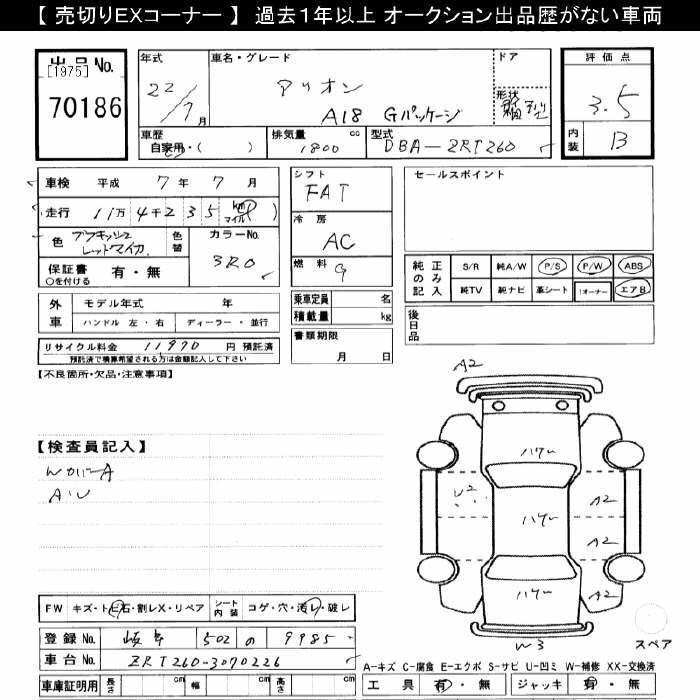 【 売切りEXコーナー 】 過去1年以上 オークション出品歴がない車両
出品 No.
[1975]
70186
年式
22/7月
車名・グレード
アリオン
A18 Gパッケージ
ドア
形状
評価点
3.5
内装 B
車歴
自家用・( )
排気量 cc
1800
型式
DBA-ZRT260
車検 平成 7年 7月
走行 11万4千235 (km マイル)
色 ブラキッシュ レッドマイカ
色替
カラーNo.
3R0
保証書 有・無
○を付ける
外車
モデル年式 年
ハンドル 左・右 ディーラー・並行
リサイクル料金 11970 円 預託済
預託済で積算希望される方は金額記入して下さい
シフト
FAT
冷房
AC
燃料
G
乗車定員 名
積載量 kg
書類期限
月 日
セールスポイント
純正のみ記入
S/R 純A/W P/S P/W ABS
純TV 純ナビ 革シート 1オーナー エアB
後日品
【不良箇所・欠品・注意事項】
【検査員記入】
WカバーA
A・U
A2
ハゲ
U2
A2
ハゲ
A2
ハゲ
A2
W3
スペア
FW キズ・ト ヒ石・割レX・リペア
シート内装 コゲ・穴・汚レ・破レ
登録 No. 岐阜 502 の 9985
車台 No. ZRT260-3070226
車庫証明用 長さ cm 幅 cm 高さ cm
A-キズ C-腐食 E-エクボ S-サビ U-凹ミ W-補修 XX-交換済
工具 有・無 ジャッキ 有・無